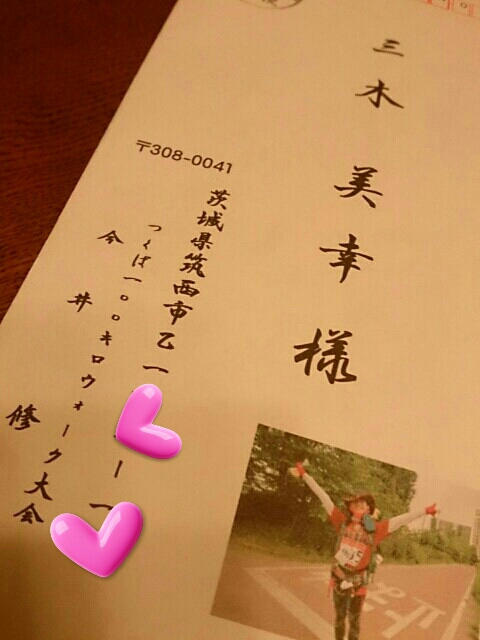 三木美幸様
〒308-0041
茨城県筑西市乙一
ー一
つくば一〇〇キロウォーク大会
今井修